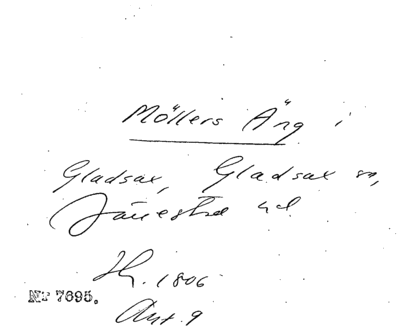 Möllers Äng i
Gladsax, Gladsax sn,
Järrestad hd.
H. 1806
Ant. 9
Nr 7695.